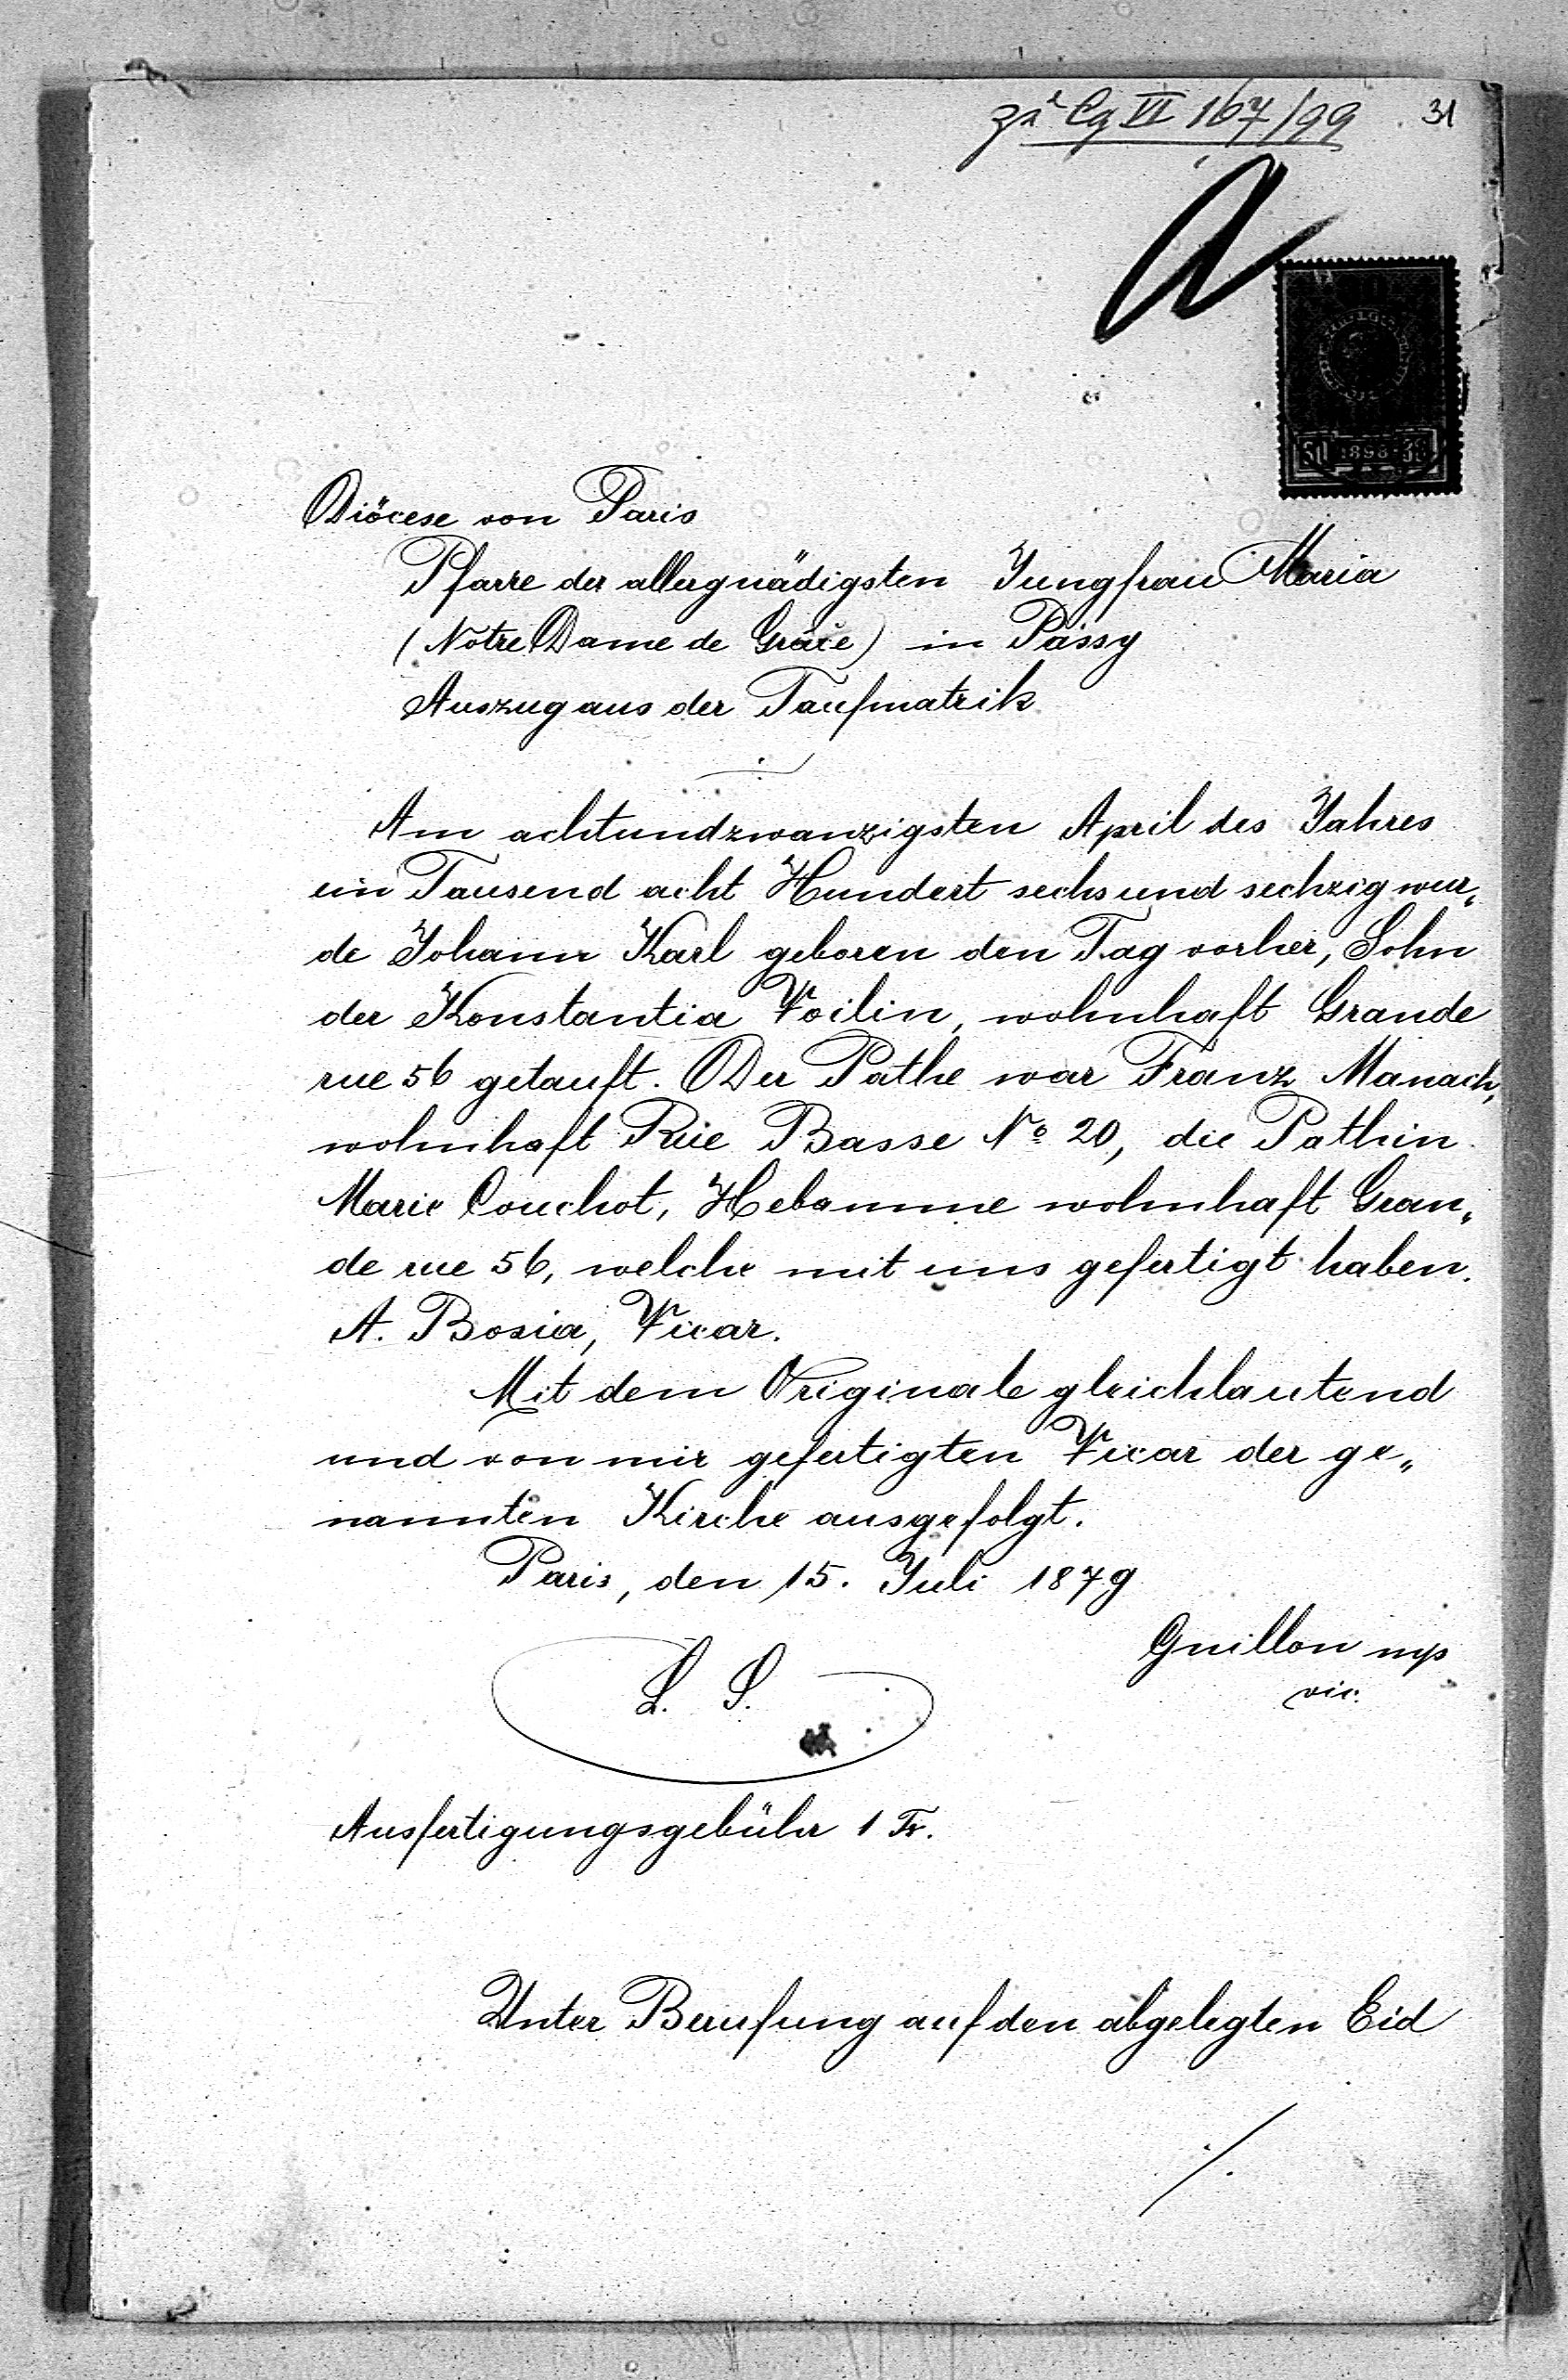 zu Cg VI 167/99 31
A
50 1898 38
Diöcese von Paris
Pfarre der allergnädigsten Jungfrau Maria
(Notre Dame de Grâce) in Passy
Auszug aus der Taufmatrik
Am achtundzwanzigsten April des Jahres
ein Tausend acht Hundert sechs und sechzig wur„
de Johann Karl geboren den Tag vorher, Sohn
der Konstantia Voilin, wohnhaft Grande
rue 56 getauft. Der Pathe war Franz Manach,
wohnhaft Rue Basse No 20, die Pathin
Marie Couchot, Hebamme wohnhaft Gran„
de rue 56, welche mit uns gefertigt haben.
A. Bosia, Vicar.
Mit dem Originale gleichlautend
und von mir gefertigten Vicar der ge„
nannten Kirche ausgefolgt.
Paris, den 15. Juli 1879
Guillon mp
vic.
L. S.
Ausfertigungsgebühr 1 Fr.
Unter Berufung auf den abgelegten Eid
./.